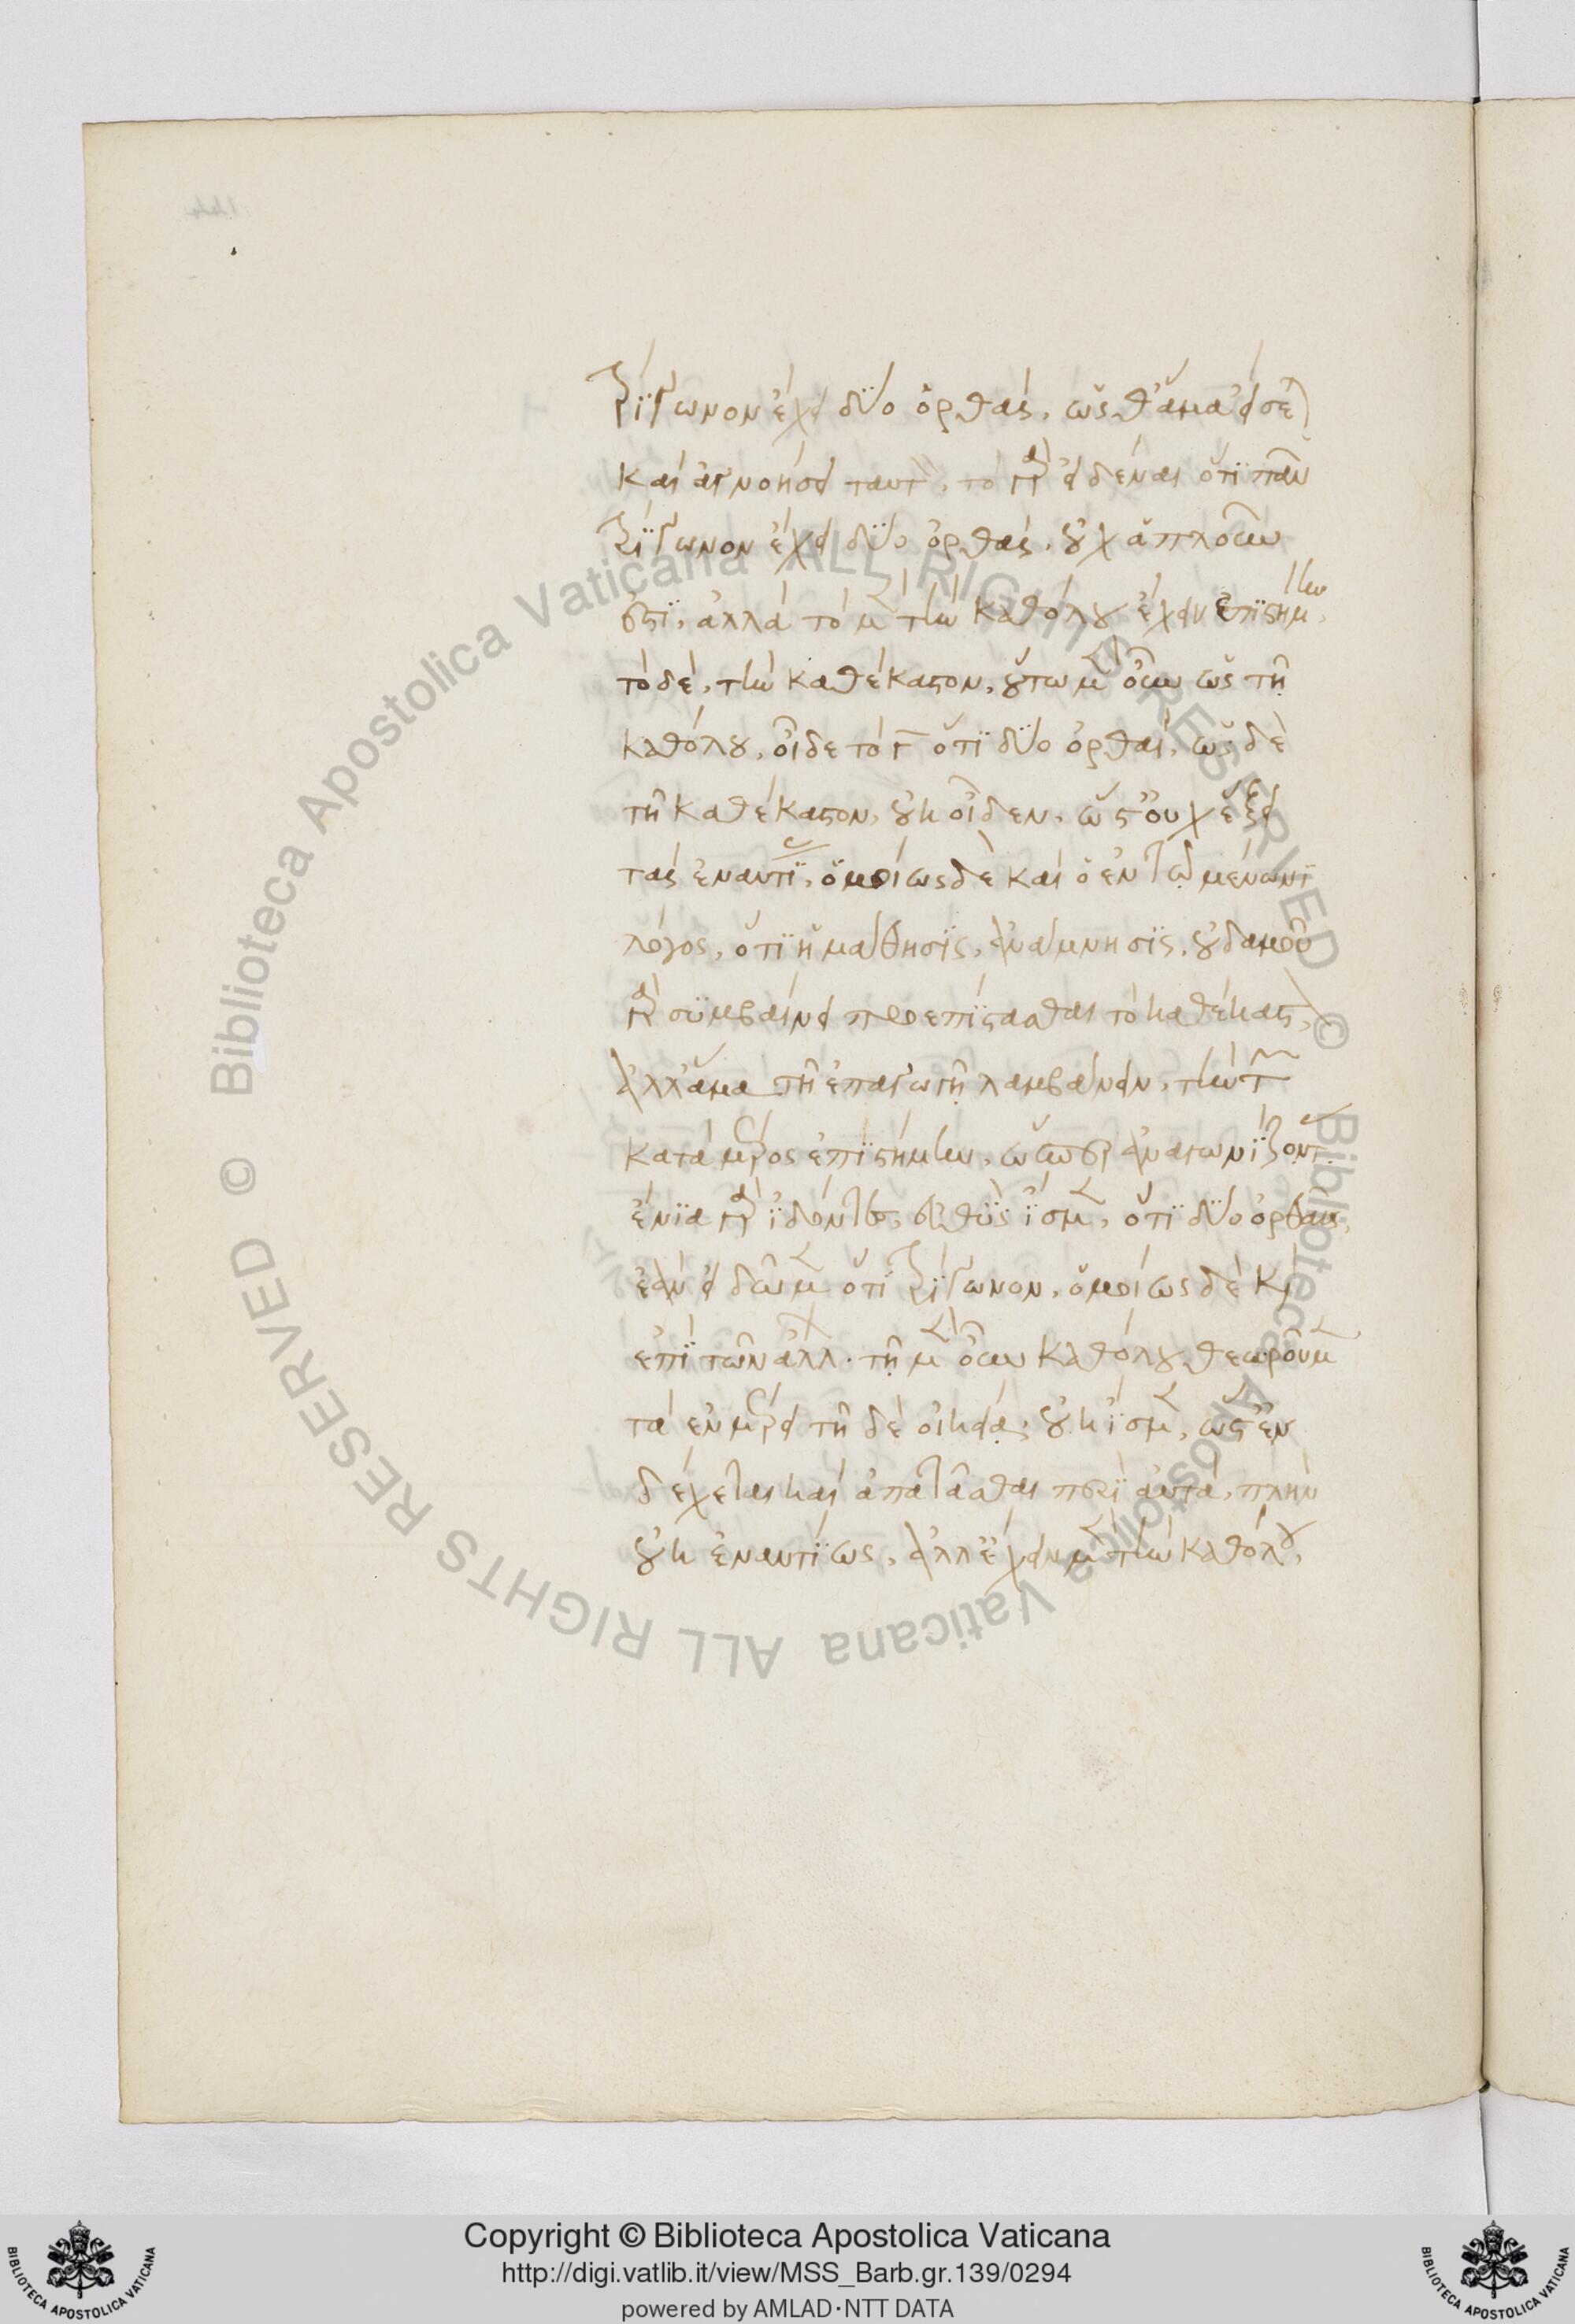 τρίγωνον ἔχει δύο ὀρθάς. ὥσθ' ἅμα εἴσεται
καὶ ἀγνοήσει ταυτ. τὸ γὰρ εἰδέναι ὅτι πᾶν
τρίγωνον ἔχει δύο ὀρθάς, οὐχ ἁπλοῦν
ἐστι, ἀλλὰ τὸ μὲν τὴν καθόλου ἔχειν ἐπιστήμην,
τὸ δὲ, τὴν καθέκαστον, οὕτω μὲν οὖν ὡς τῇ
καθόλου, οἶδε τὸ γ ὅτι δύο ὀρθαί, ὡς δὲ
τῇ καθέκαστον, οὐκ οἶδεν, ὥστ' οὐχ ἕξει
τὰς ἐναντί. ὁμοίως δὲ καὶ ὁ ἐν τῷ μένωνι
λόγος, ὅτι ἡ μάθησις, ἀνάμνησις, οὐδαμοῦ
γὰρ συμβαίνει προεπίστασθαι τὸ καθέκαστ,
ἀλλ' ἅμα τῇ ἐπαγωγῇ λαμβάνειν, τὴν τῶν
κατὰ μέρος ἐπιστήμην, ὥσπερ ἀναγωνίζοντ.
ἔνια γὰρ ἰδόντες, εὐθὺς ἴσμεν, ὅτι δύο ὀρθαῖς,
ἐὰν εἰδῶμεν ὅτι τρίγωνον, ὁμοίως δὲ καὶ
ἐπὶ τῶν ἄλλ. τῇ μὲν οὖν καθόλου θεωροῦμεν
τὰ ἐν μέρει τῇ δὲ οἰκείᾳ, οὐκ ἴσμεν, ὥστ' ἐν
δέχεται καὶ ἀπατᾶσθαι περὶ αὐτά, πλὴν
οὐκ ἐναντίως, ἀλλ' ἔχειν μὲν τὴν καθόλου,
Copyright © Biblioteca Apostolica Vaticana
http://digi.vatlib.it/view/MSS_Barb.gr.139/0294
powered by AMLAD·NTT DATA
BIBLIOTECA APOSTOLICA VATICANA
BIBLIOTECA APOSTOLICA VATICANA
© Biblioteca Apostolica Vaticana ALL RIGHTS RESERVED
© Biblioteca Apostolica Vaticana ALL RIGHTS RESERVED